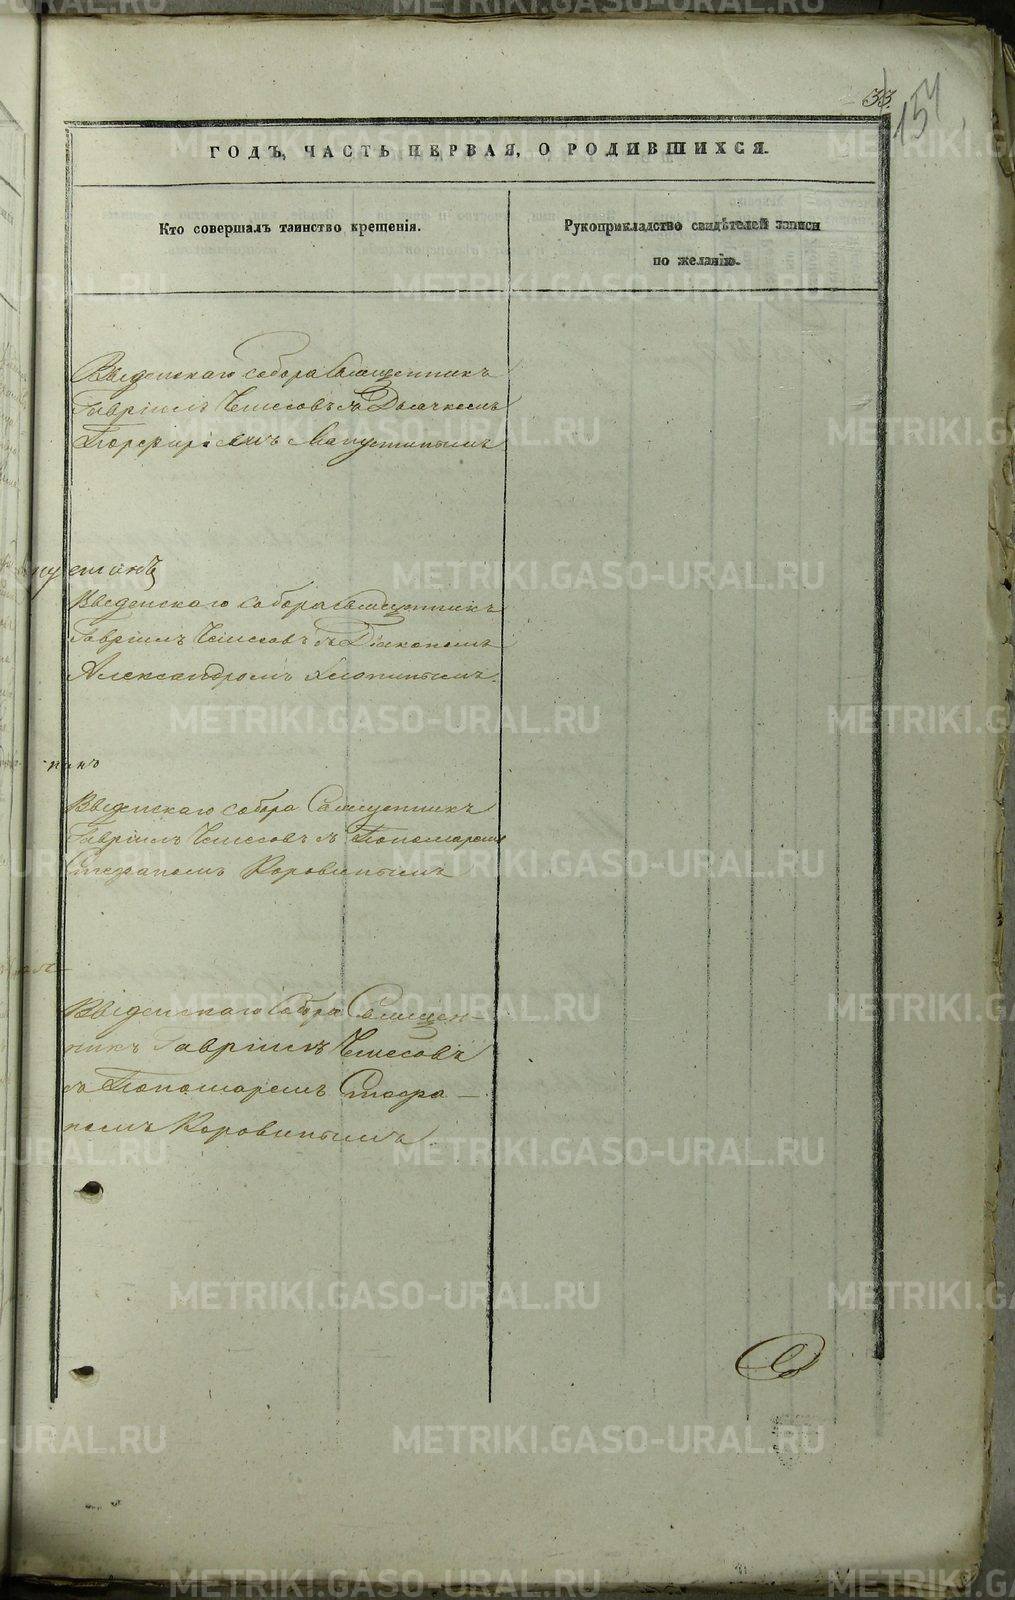 33.
154
ГОДЪ, ЧАСТЬ ПЕРВАЯ, О РОДИВШИХСЯ.
Кто совершалъ таинство крещенія.
Рукоприкладство свидѣтелей записи
по желанію.
Введенскаго собора Священникъ
Гавріилъ Чемесовъ съ Дьячкомъ
Порфиріемъ
Введенскаго собора Священникъ
Гавріилъ Чемесовъ съ Діакономъ
Александромъ Хлопинымъ.
Введенскаго собора Священникъ
Гавріилъ Чемесовъ съ Пономаремъ
Стефаномъ Коровинымъ
Введенскаго собора Священ-
никъ Гавріилъ Чемесовъ
съ Пономаремъ Стефа-
номъ Коровинымъ.
METRIKI.GASO-URAL.RU